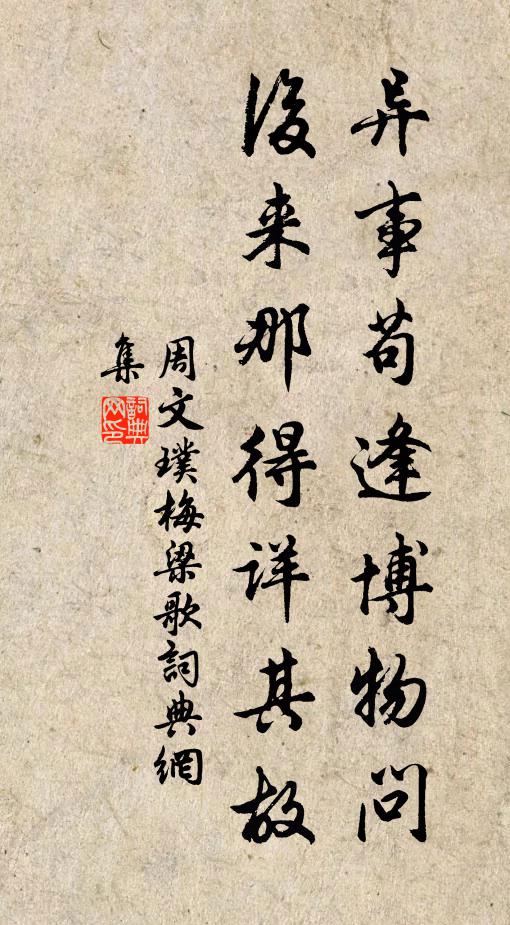 异事苟逢博物问
後来那得详其故
周文璞梅梁歌詞典網
集
詞典网印